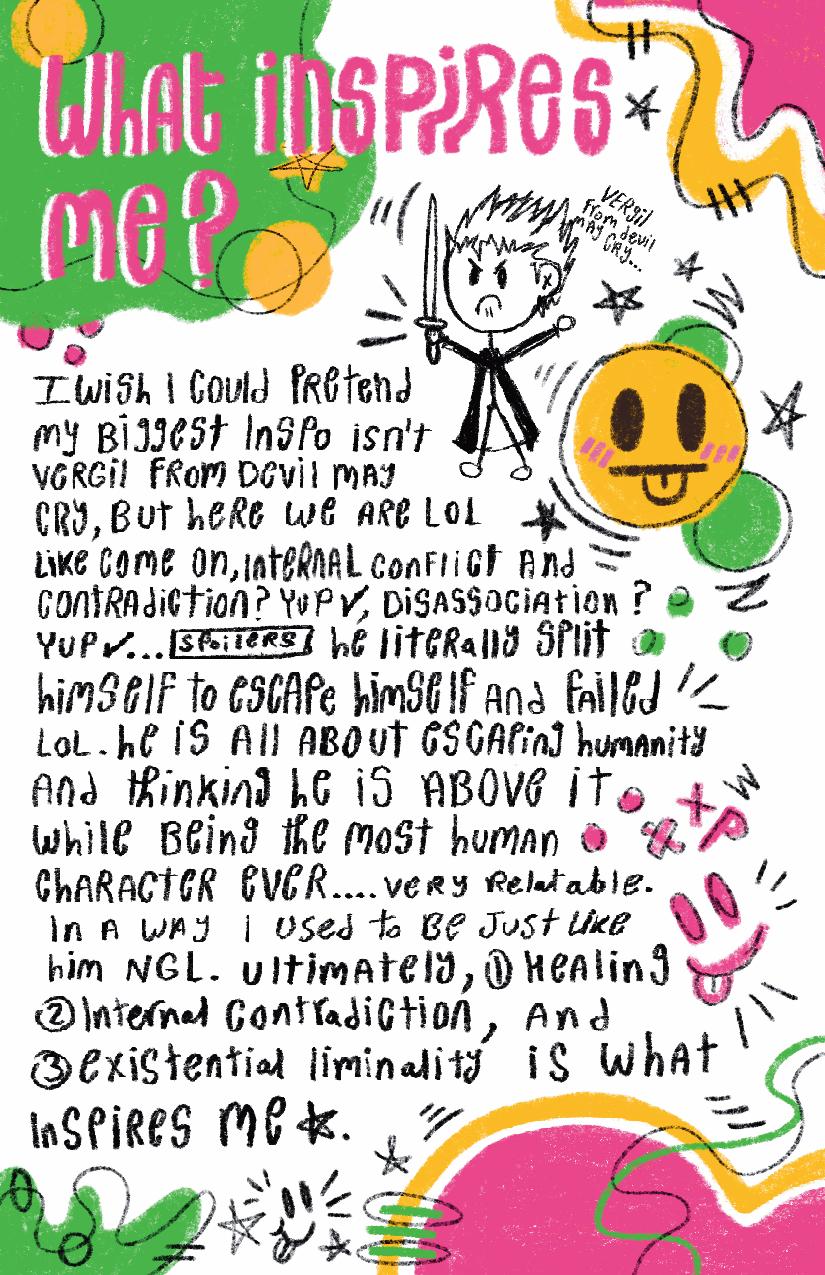 What inspires
me?
VERGil
from devil
mAy
CRy...
I wish I could pretend
my Biggest InSpo isn't
vergil from Devil may
cry, But here we are LoL
Like come on, internal conflict and
contradiction? Yup ✓, Disassociation?
Yup ✓... spoilers he literally split
himself to escape himself and failed
LoL. he is all about escaping humanity
and thinking he is above it
while Being the most human
character ever.... very relatable.
In a way I used to be just like
him NGL. ultimately, ① Healing
② Internal contradiction, and
③ existential liminality is what
inspires me ★.
XP